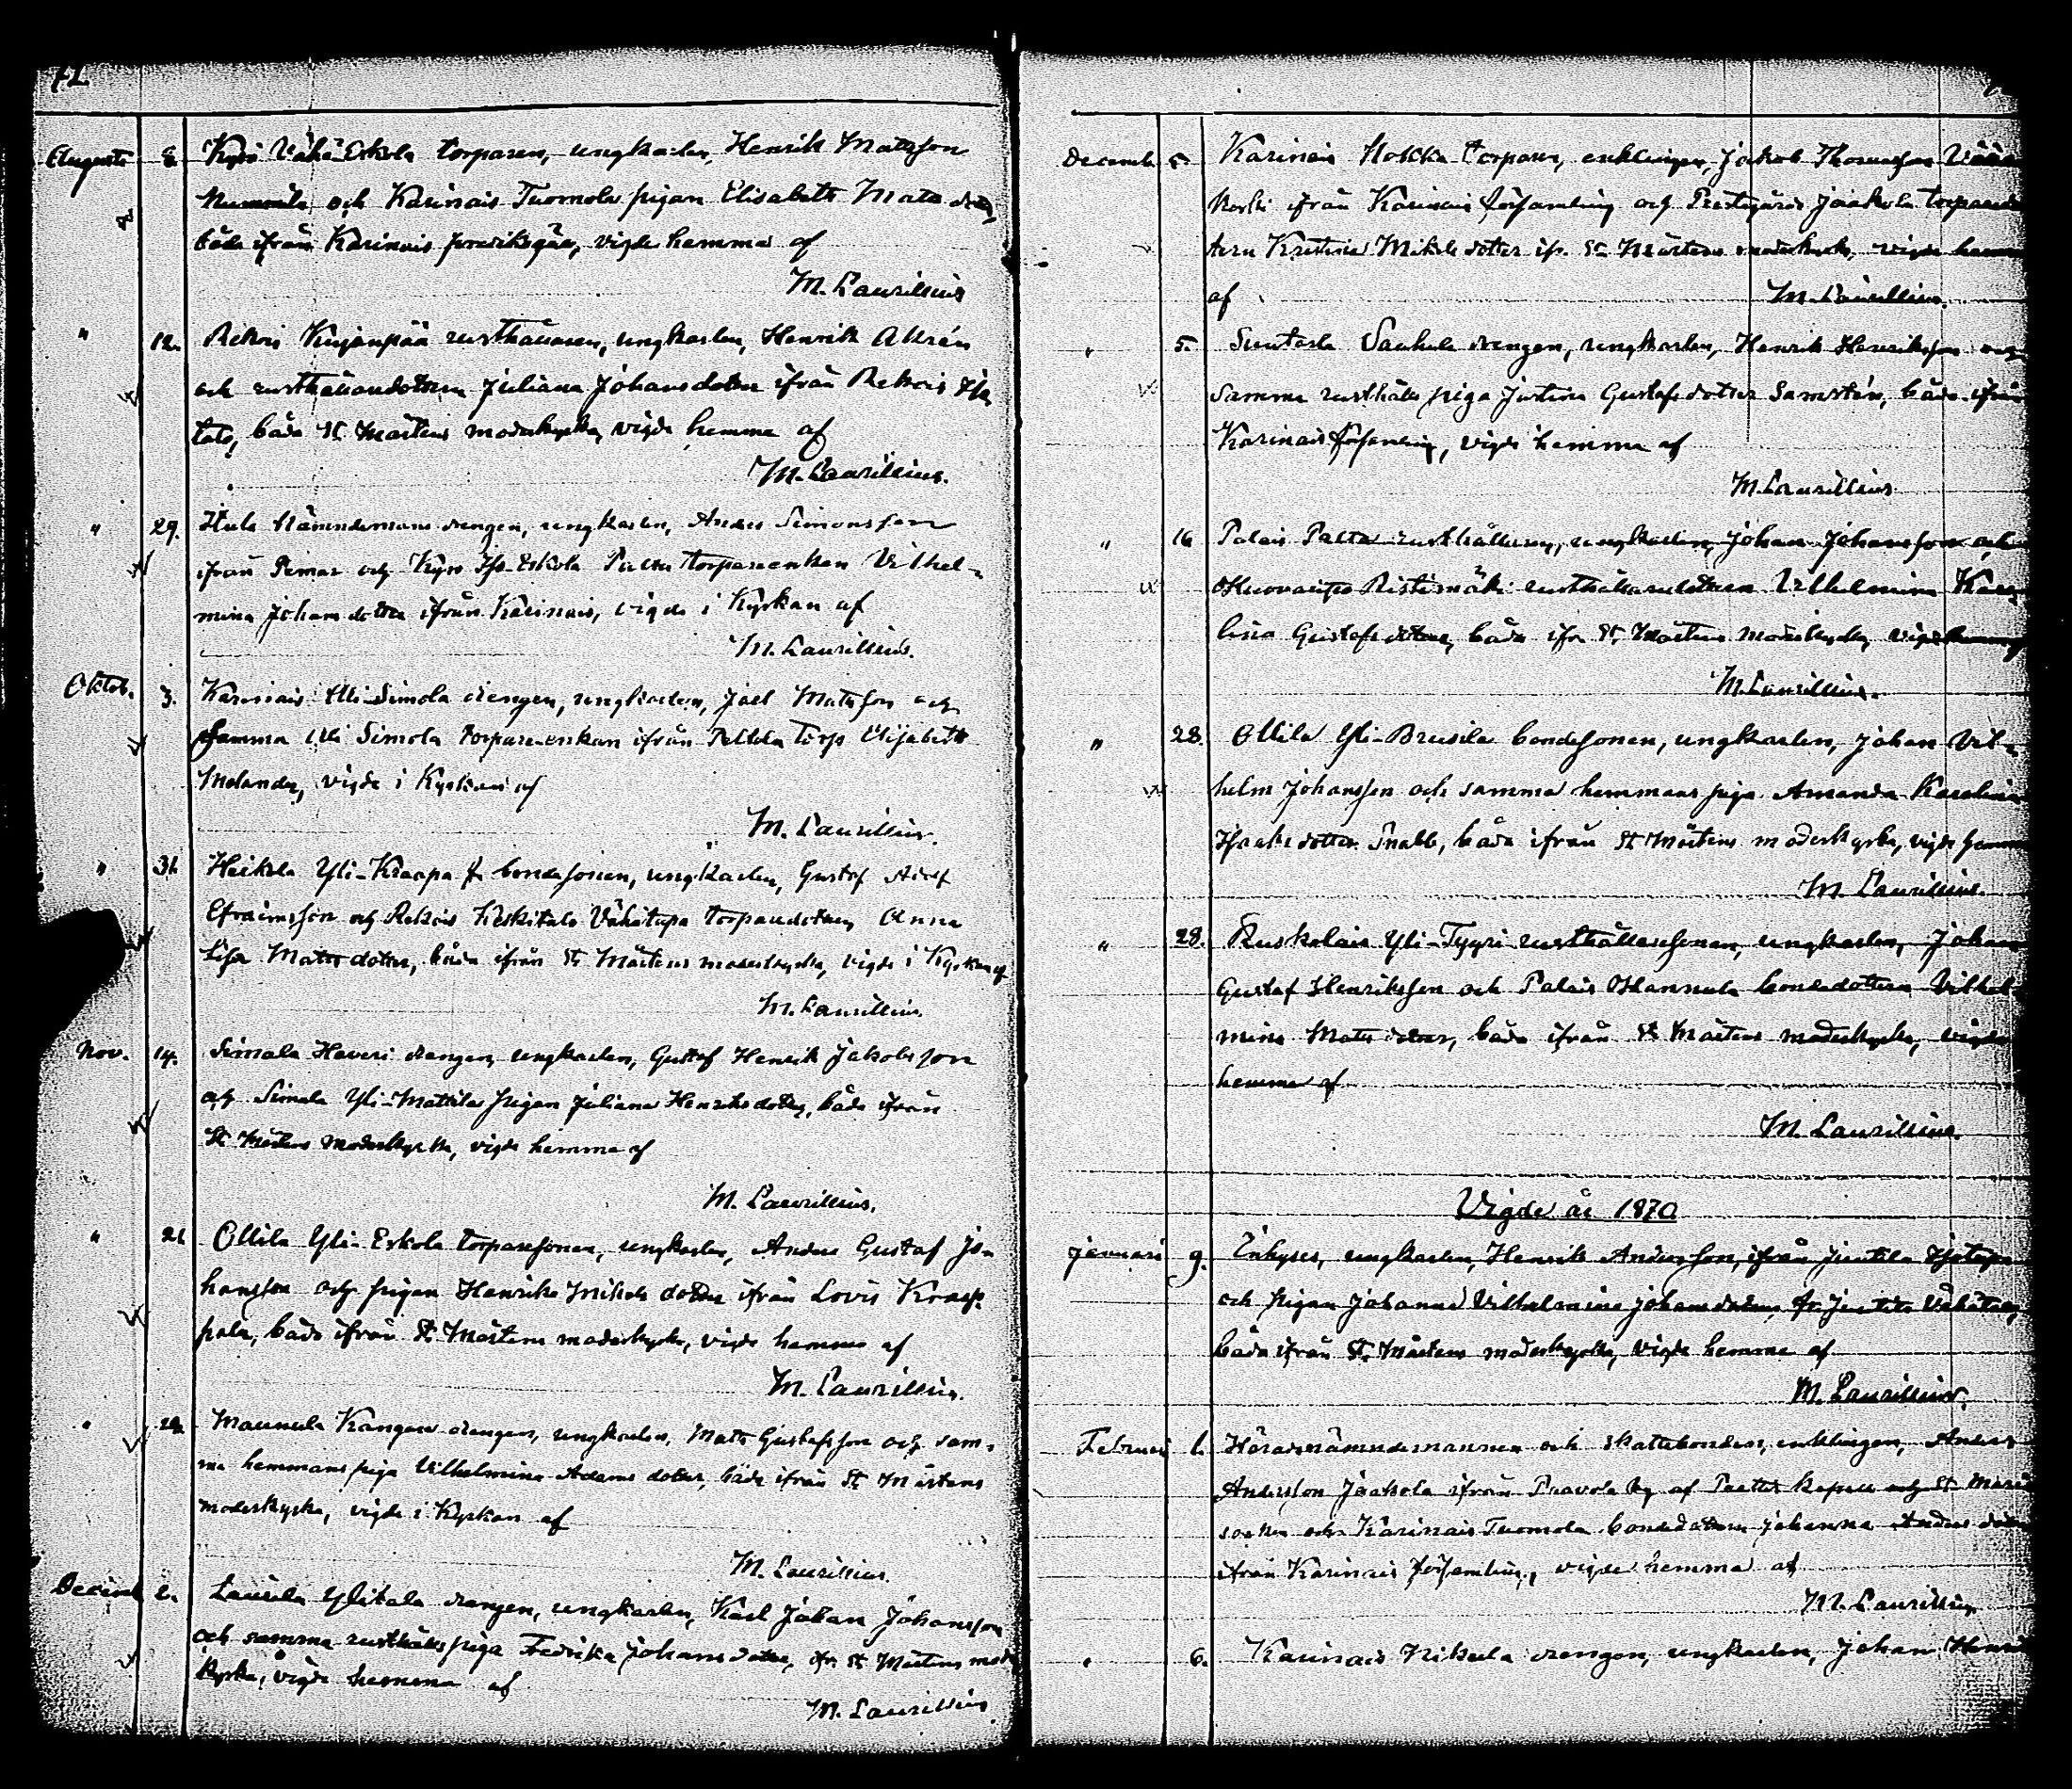 72.
Augusti 8. Kyrö Vähä-Eskola torparen, ungkarlen, Henrik Matsson
Nummila och Karinais Tuomola pigan Elisabeth Mats dotter,
båda ifrån Karinais, vigde hemma af
M. Laurillius
" 12. Rekois Kujanpää rusthållaren, ungkarlen, Henrik Akrén
och rusthållaredottren Juliana Johansdotter ifrån Rekois Iso
talo, båda St Mårtens moderkyrka, vigde hemma af
M. Laurillius.
" 29. nämndemans drengen, ungkarlen, Anders Simonsson
ifrån Pemar och Kyrö Iso-Eskola torpareenkan Vilhel-
mina Johans dotter ifrån Karinais, vigde i Kyrkan af
M. Laurillius.
Oktob. 3. Karinais Yli-Simola drengen, ungkarlen, Joel Matsson och
samma Yli Simola torpare-enkan ifrån Peltola torp Elisabeth
Melander, vigde i Kyrkan af
M. Laurillius.
" 31. Heikola Yli-Knaapa bondesonen, ungkarlen, Gustaf Adolf
Efraimsson och Rekois Keskitalo Vähätupa torparedottren Anna
Lisa Matsdotter, båda ifrån St Mårtens moderkyrka, vigde i Kyrkan af
M. Laurillius.
Nov. 14. Simala Haveri drengen, ungkarlen, Gustaf Henrik Jakobsson
och Simala Yli-Mattila pigan Juliana Henriksdotter, båda ifrån
St Mårtens moderkyrka, vigde hemma af
M. Laurillius.
" 21. Ollila Yli-Eskola torparesonen, ungkarlen, Anders Gustaf Jo-
hansson och pigan Henrika Mikels dotter ifrån Lovis
båda ifrån St Mårtens moderkyrka, vigde hemma af
M. Laurillius.
" Maunula Kangas drengen, ungkarlen, Mats Gustafsson och sam-
ma hemmans piga Vilhelmina Adams dotter, båda ifrån St Mårtens
moderkyrka, vigde i Kyrkan af
M. Laurillius.
Decemb 2. Laurila Ylitalo drengen, ungkarlen, Karl Johan Johansson
och samma rusthålls piga Fredrika Johans dotter, ifr. St Mårtens moder
kyrka, vigde hemma af
M. Laurillius.
Decemb 5. Karinais Nokka torparen, enklingen, Jakob Thomasson
koski ifrån Karinais församling och Prestgårds Jaakola torparedot
tern Kristina Mikels dotter ifr. St Mårtens moderkyrka, vigde hemma
af M. Laurillius.
" 5. Suutarla Vanhala drengen, ungkarlen, Henrik Henriksson och
samma rusthålls piga Justina Gustafs dotter Samstén, båda ifrån
Karinais församling, vigde hemma af
M. Laurillius
" 16 Palais Palta rusthållaren, ungkarlen, Johan Johansson och
Ristimäki rusthållaredottren Vilhelmina Karo
lina Gustafs dotter, båda ifr. St Mårtens moderkyrka, vigde hemma af
M. Laurillius.
" 28. Ollila Yli-Brusila bondesonen, ungkarlen, Johan Vil-
helm Johansson och samma hemmans piga Amanda Karolina
Isaks dotter Snabb, båda ifrån St Mårtens moderkyrka, vigde hemma
M. Laurillius.
" 28. Ruskalais Yli-Tyyri rusthållaresonen, ungkarlen, Johan
Gustaf Henriksson och Palais Hannula bondedottern Vilhel
mina Mats dotter, båda ifrån St Mårtens moderkyrka, vigde
hemma af
M. Laurillius.
Vigde år 1870
Januari 9. Inhyses, ungkarlen, Henrik Andersson, ifrån Juntila Isotupa
och pigan Johanna Vilhelmina Johansdotter, fr. Juntila Vähätupa,
båda ifrån St. Mårtens moderkyrka, vigde hemma af
M. Laurillius.
Februari 1. Häradsnämndemannen och skattebonden, enklingen, Anders
Andersson Jaakola ifrån Paavola by af Paattis kapell och St Marie
socken och Karinais Tuomola bondedottern Johanna Anders dotter
ifrån Karinais församling, vigde hemma af
M. Laurillius
" 6. Karinais Nikula drengen, ungkarlen, Johan Henrik